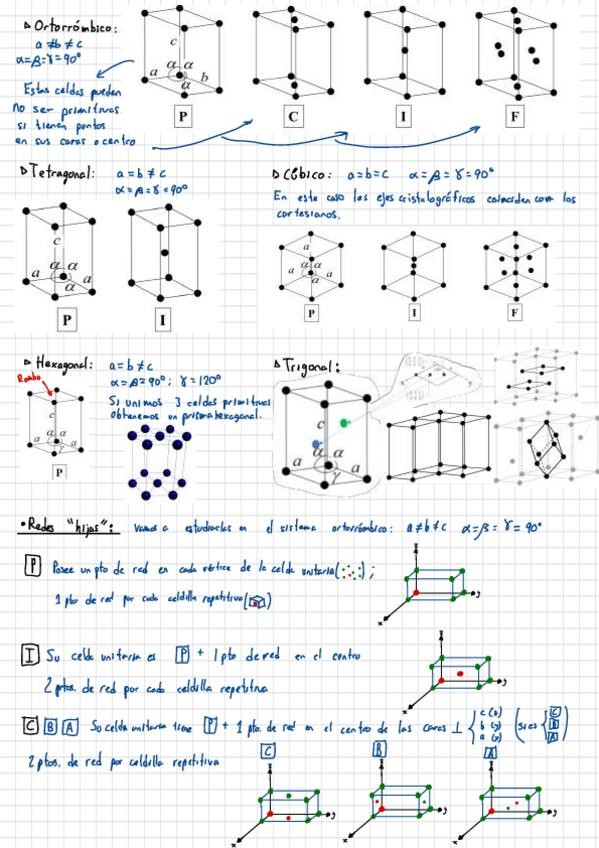 ▷ Ortorrómbico:
a ≠ b ≠ c
α=β=γ=90°
Estas celdas pueden
no ser primitivas
si tienen puntos
en sus caras o centro
c
a α α b
α
P C I F
▷ Tetragonal: a=b≠c
α=β=γ=90°
c
a α α a
α
P I
▷ Cúbico: a=b=c α=β=γ=90°
En este caso los ejes cristalográficos coinciden con los
cartesianos.
a
a α α a
α
P I F
▷ Hexagonal: a=b≠c
α=β=90°; γ=120°
Rombo
Si unimos 3 celdas primitivas
obtenemos un prisma hexagonal.
c
a α α a
γ
P
▷ Trigonal:
c
a α α a
γ
• Redes "hijas": Vamos a estudiarlas en el sistema ortorrómbico: a≠b≠c α=β=γ=90°
P Posee un pto de red en cada vértice de la celda unitaria ( );
1 pto de red por cada celdilla repetitiva ( )
z
y
x
I Su celda unitaria es P + 1 pto de red en el centro
2 ptos. de red por cada celdilla repetitiva
z
y
x
C B A Su celda unitaria tiene P + 1 pto. de red en el centro de las caras ⊥ { c (z) b (y) a (x) (si es { C B A )
2 ptos. de red por celdilla repetitiva
C B A
z z z
y y y
x x x